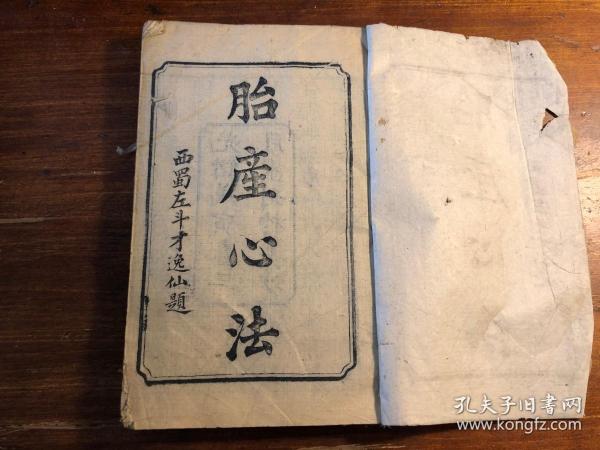 胎產心法
西蜀左斗才逸仙題
孔夫子旧书网
www.kongfz.com